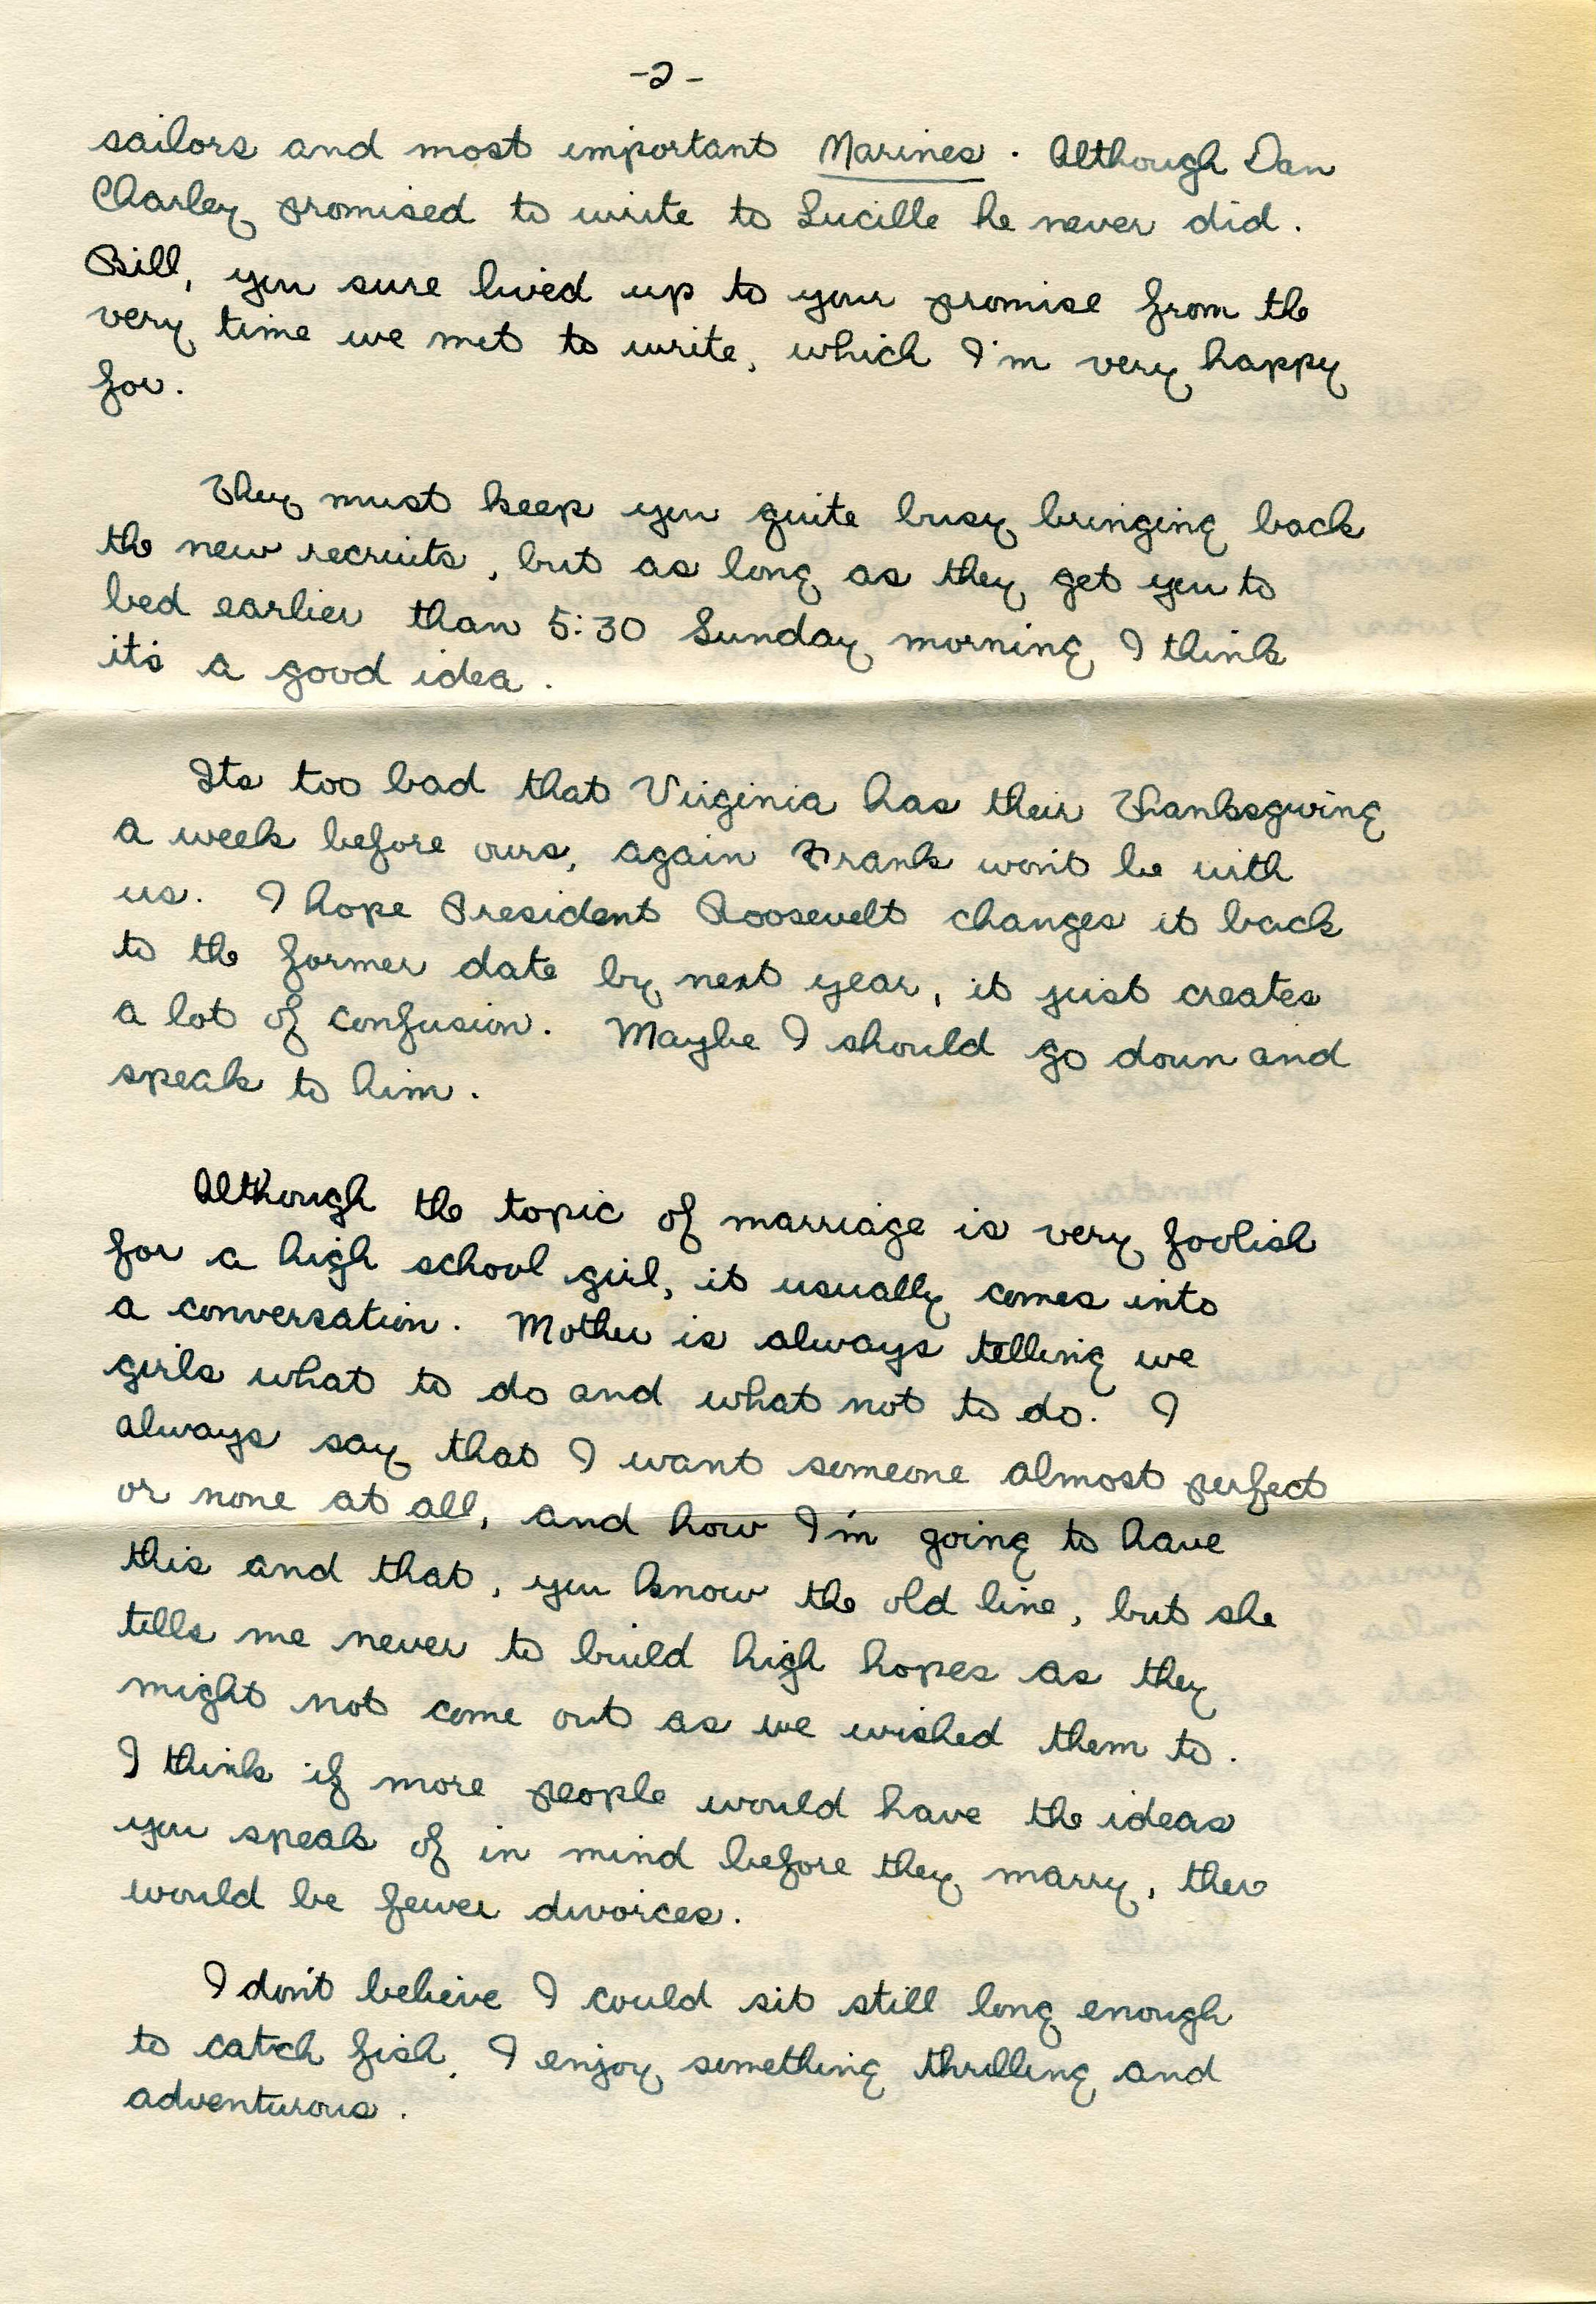 -2-
sailors and most important Marines. Although Dan
Charley promised to write to Lucille he never did.
Bill, you sure lived up to your promise from the
very time we met to write, which I'm very happy
for.
They must keep you quite busy bringing back
the new recruits, but as long as they get you to
bed earlier than 5:30 Sunday morning I think
it's a good idea.
Its too bad that Virginia has their Thanksgiving
a week before ours, again Frank won't be with
us. I hope President Roosevelt changes it back
to the former date by next year, it just creates
a lot of confusion. Maybe I should go down and
speak to him.
Although the topic of marriage is very foolish
for a high school girl, it usually comes into
a conversation. Mother is always telling we
girls what to do and what not to do. I
always say that I want someone almost perfect
or none at all, and how I'm going to have
this and that, you know the old line, but she
tells me never to build high hopes as they
might not come out as we wished them to.
I think if more people would have the ideas
you speak of in mind before they marry, ther
would be fewer divorces.
I don't believe I could sit still long enough
to catch fish. I enjoy something thrilling and
adventurous.